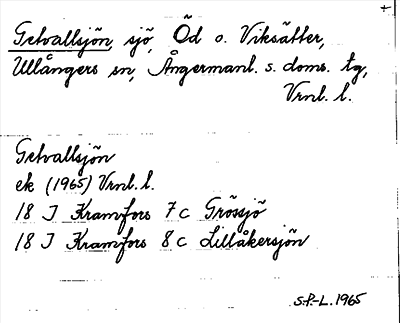 +
Getvallsjön sjö, Öd o. Viksätter,
Ullångers sn, Ångermanl. s. doms. tg,
Vrnl. l.
Getvallsjön
ek (1965) Vrnl. l.
18 J Kramfors 7 c Grössjö
18 J Kramfors 8 c Lillåkersjön
S.P.-L. 1965